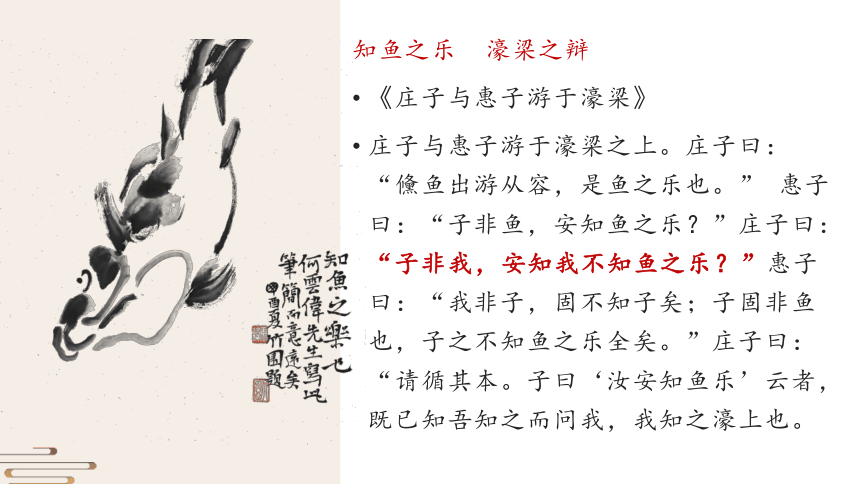 知鱼之乐 濠梁之辩
• 《庄子与惠子游于濠梁》
• 庄子与惠子游于濠梁之上。庄子曰：
“儵鱼出游从容，是鱼之乐也。” 惠子
曰：“子非鱼，安知鱼之乐？”庄子曰：
“子非我，安知我不知鱼之乐？”惠子
曰：“我非子，固不知子矣；子固非鱼
也，子之不知鱼之乐全矣。”庄子曰：
“请循其本。子曰‘汝安知鱼乐’云者，
既已知吾知之而问我，我知之濠上也。
知魚之樂也
何雲偉先生寫此
筆簡而意遠矣
酉夏竹園題